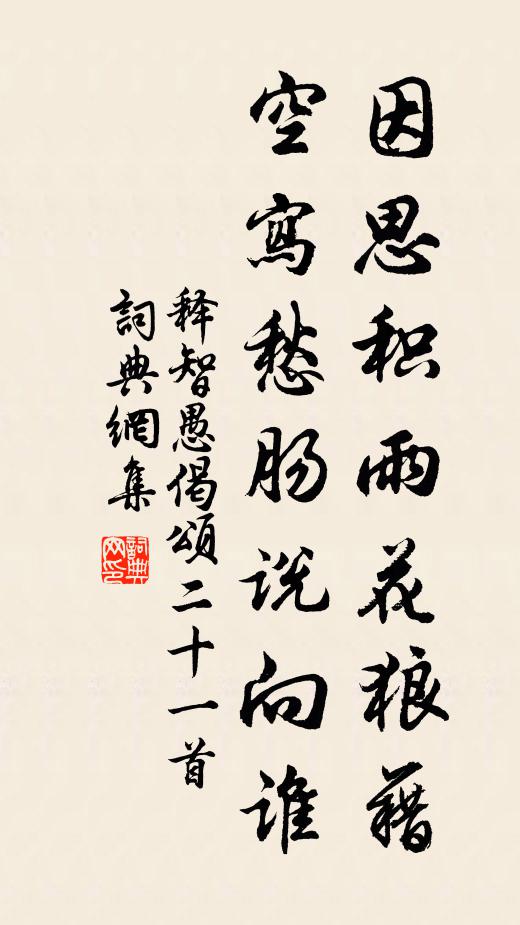 因思积雨花狼藉
空寫愁肠说向谁
释智愚偈頌二十一首
詞典網集
詞典网印